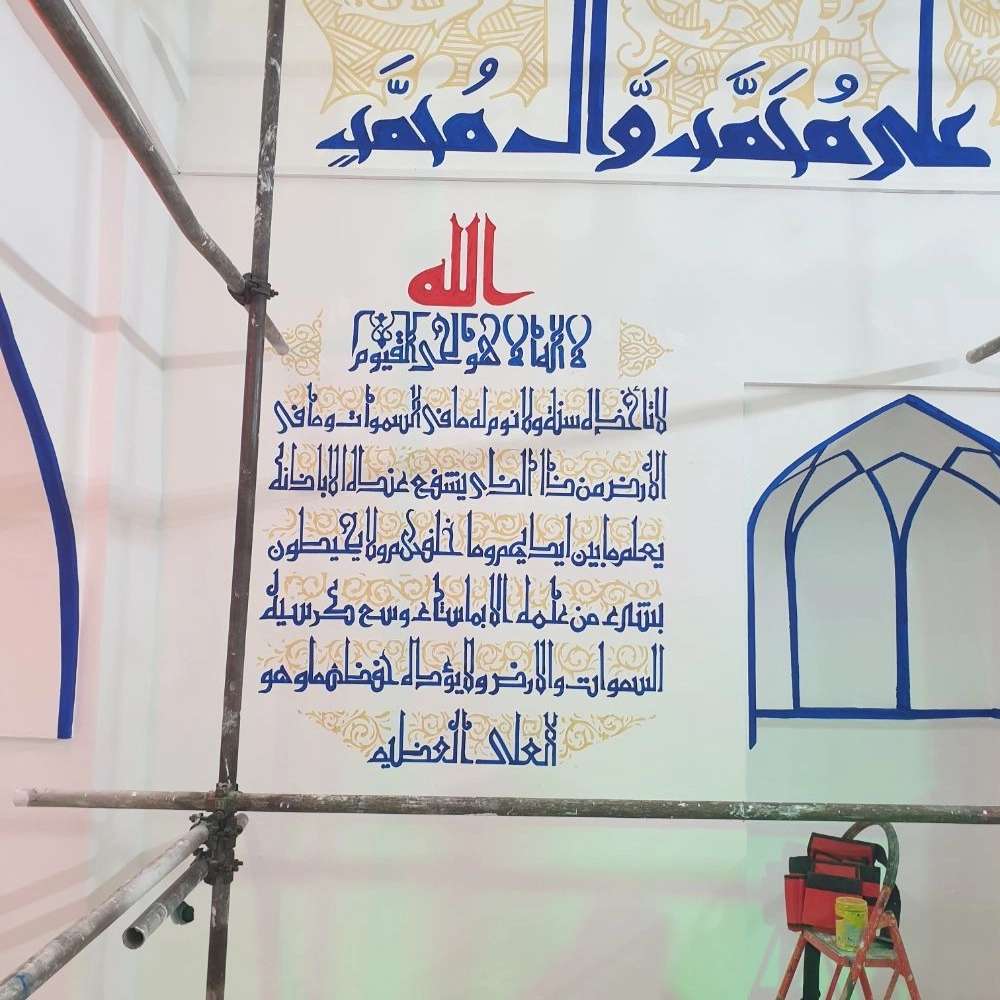 على مُحَمَّد وَّال مُحَمَّدٍ
الله
لا اله الا هو الحى القيوم
لا تأخذه سنة ولا نوم له ما فى السموات وما فى
الأرض من ذا الذى يشفع عنده الا باذنه
يعلم ما بين ايديهم وما خلفهم ولا يحيطون
بشىء من علمه الا بما شاء وسع كرسيه
السموات والارض ولا يؤده حفظهما وهو
العلى العظيم